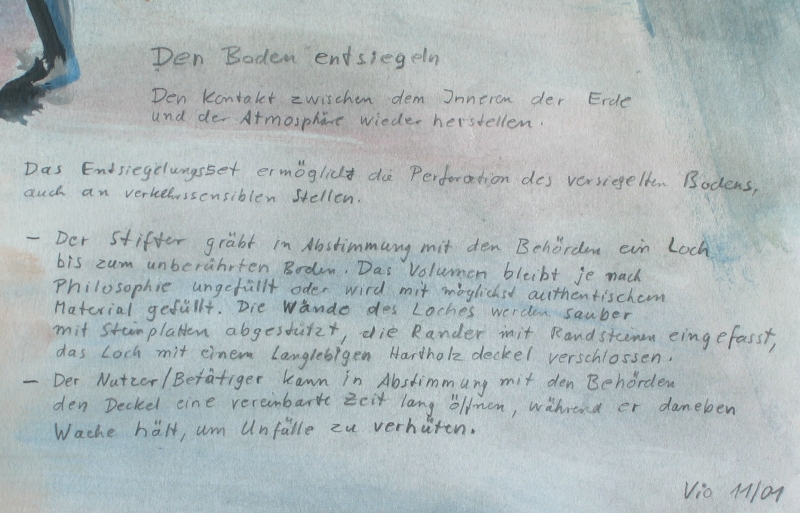 Den Boden entsiegeln
Den Kontakt zwischen dem Inneren der Erde
und der Atmosphäre wieder herstellen.
Das Entsiegelungsset ermöglicht die Perforation des versiegelten Bodens,
auch an verkehrssensiblen Stellen.
- Der Stifter gräbt in Abstimmung mit den Behörden ein Loch
bis zum unberührten Boden. Das Volumen bleibt je nach
Philosophie ungefüllt oder wird mit möglichst authentischem
Material gefüllt. Die Wände des Loches werden sauber
mit Steinplatten abgestützt, die Ränder mit Randsteinen eingefasst,
das Loch mit einem Langlebigen Hartholzdeckel verschlossen.
- Der Nutzer/Betätiger kann in Abstimmung mit den Behörden
den Deckel eine vereinbarte Zeit lang öffnen, während er daneben
Wache hält, um Unfälle zu verhüten.
Vio 11/01